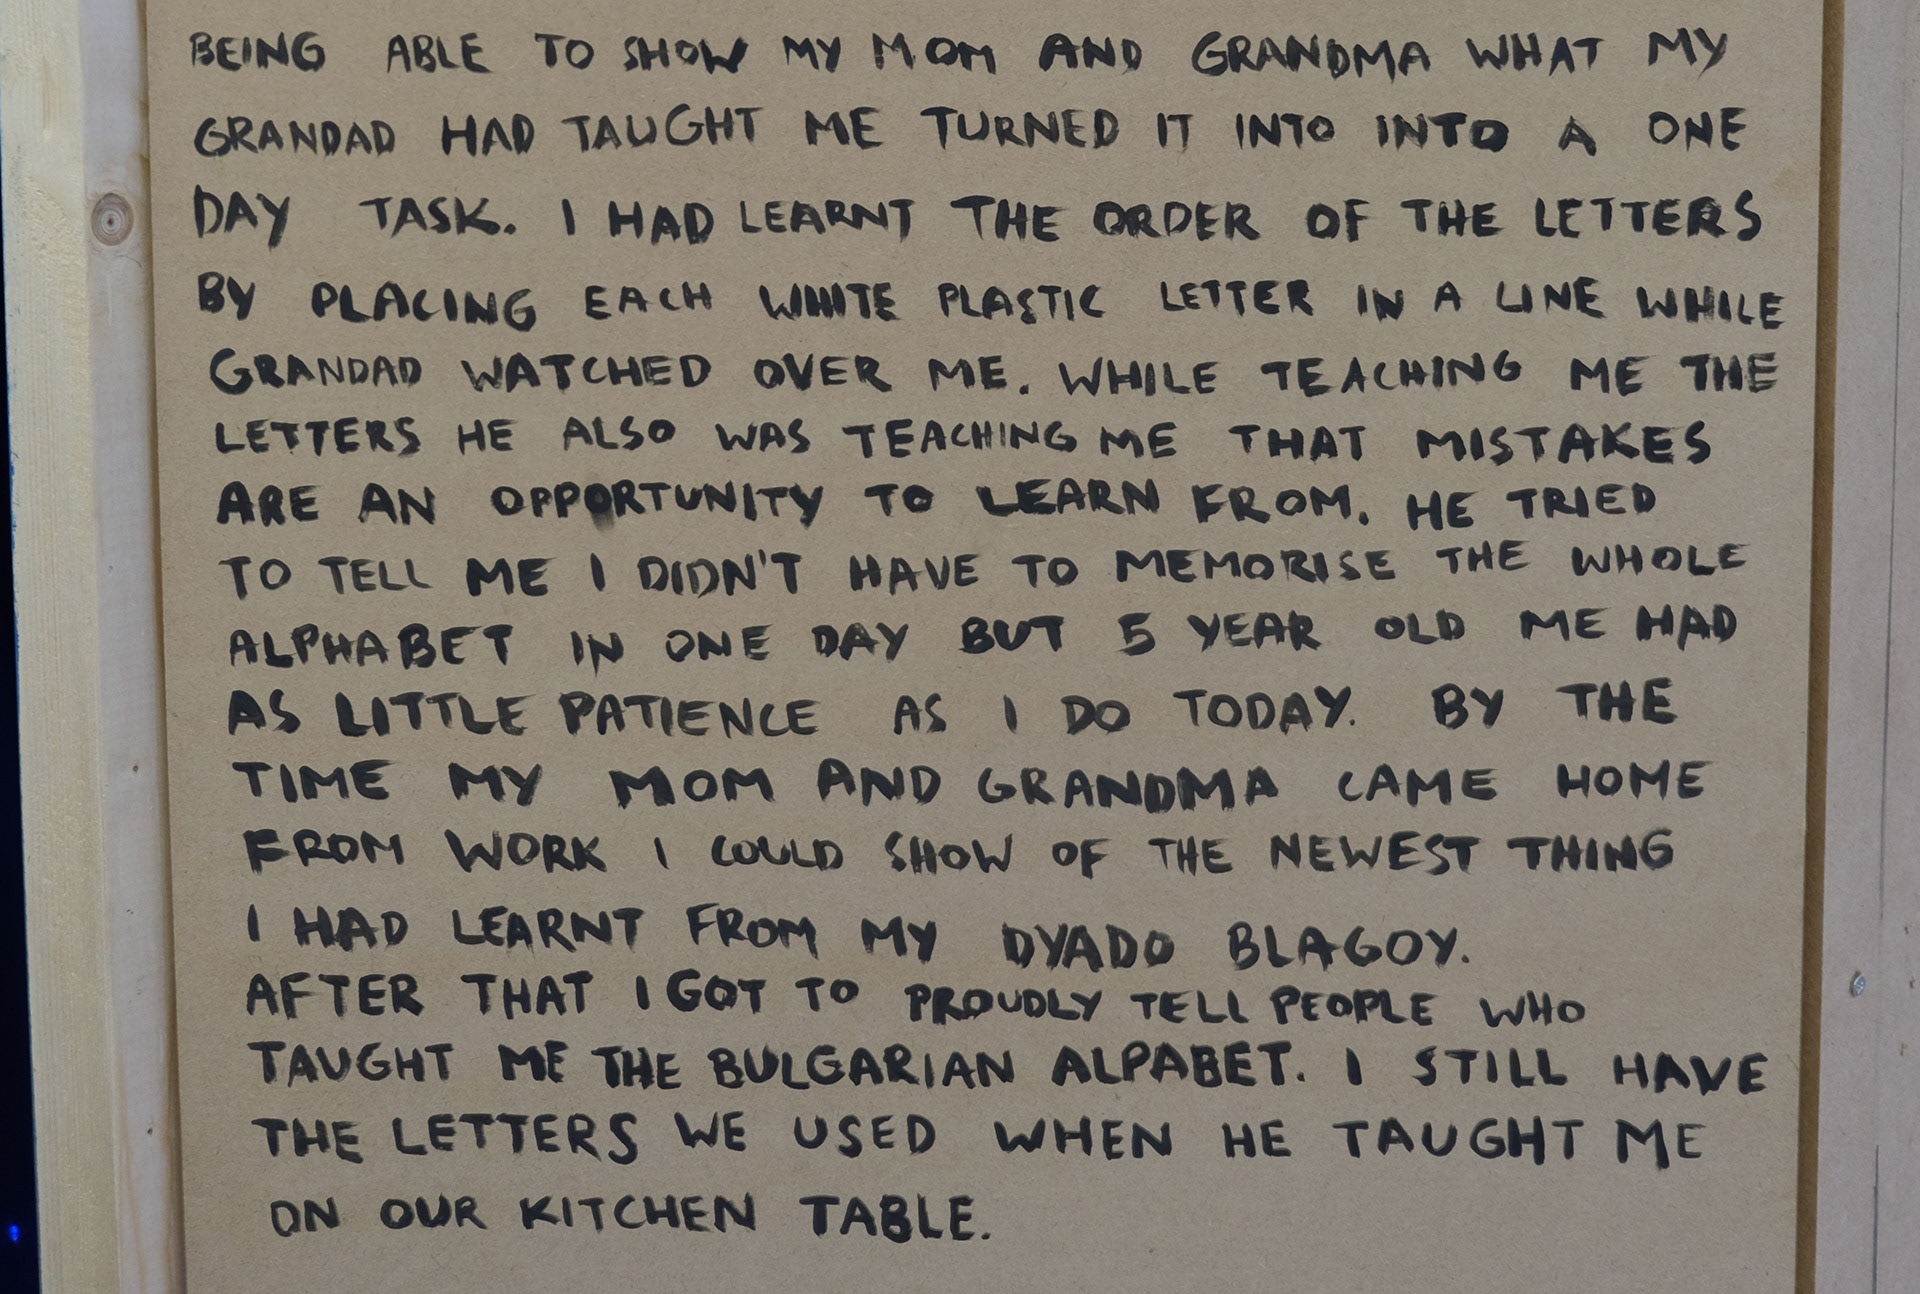 BEING ABLE TO SHOW MY MOM AND GRANDMA WHAT MY
GRANDAD HAD TAUGHT ME TURNED IT INTO INTO A ONE
DAY TASK. I HAD LEARNT THE ORDER OF THE LETTERS
BY PLACING EACH WHITE PLASTIC LETTER IN A LINE WHILE
GRANDAD WATCHED OVER ME. WHILE TEACHING ME THE
LETTERS HE ALSO WAS TEACHING ME THAT MISTAKES
ARE AN OPPORTUNITY TO LEARN FROM. HE TRIED
TO TELL ME I DIDN'T HAVE TO MEMORISE THE WHOLE
ALPHABET IN ONE DAY BUT 5 YEAR OLD ME HAD
AS LITTLE PATIENCE AS I DO TODAY. BY THE
TIME MY MOM AND GRANDMA CAME HOME
FROM WORK I COULD SHOW OF THE NEWEST THING
I HAD LEARNT FROM MY DYADO BLAGOY.
AFTER THAT I GOT TO PROUDLY TELL PEOPLE WHO
TAUGHT ME THE BULGARIAN ALPABET. I STILL HAVE
THE LETTERS WE USED WHEN HE TAUGHT ME
ON OUR KITCHEN TABLE.